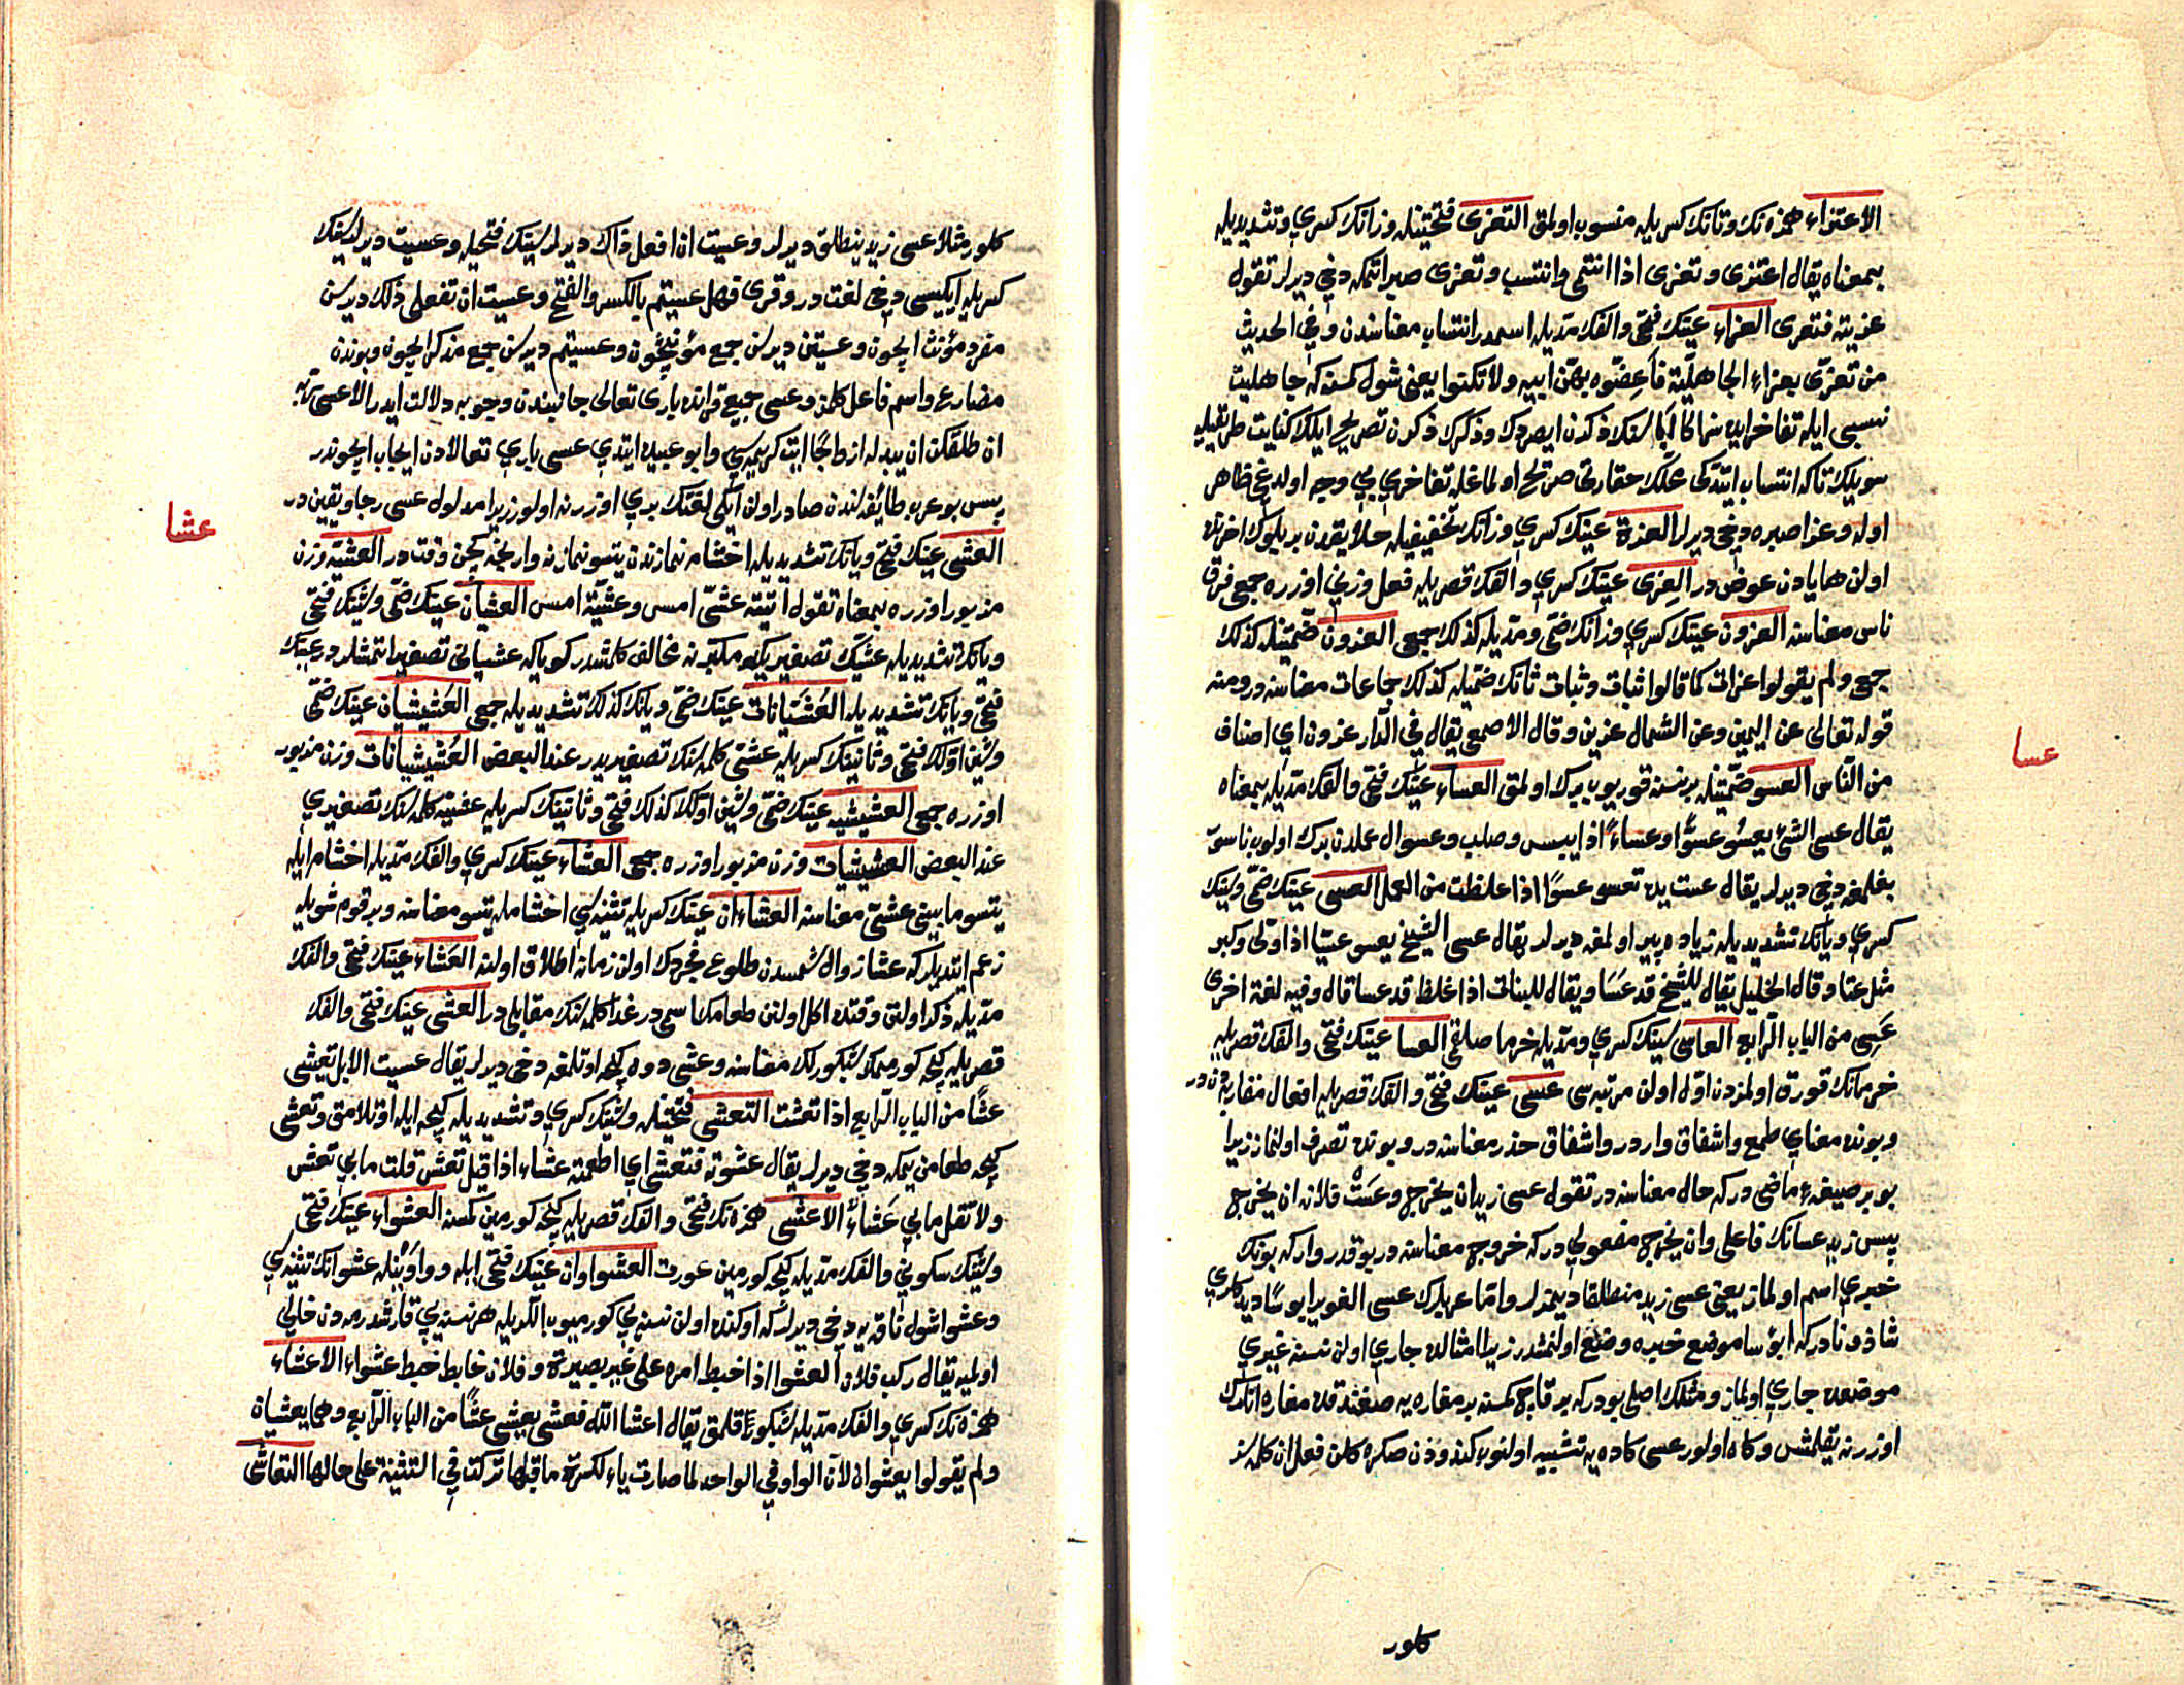 الاعتزاء همزه‌نك وتانك كسريله منسوب اولمق التعزى فتحتينله وزانك كسري وتشديديله
بمعناه يقال اعتزى وتعزى اذا انتمى وانتسب وتعزى صبر اتمكه دخي ديرلر تقول
عزيته فتعزى العزاء عينك فتحى والفك مديله اسمدر انتساب معناسندن وفي الحديث
من تعزى بعزاء الجاهلية فأعضوه بهن ابيه ولا تكنوا يعنى شول كمسنه كه جاهليت
نسبى ايله تفاخر ايده
سويلك تاكه انتساب ايتدكى حقارتى صريح اولماغله تفاخري بي وجه اولديغى ظاهر
اوله وعزا صبره دخى ديرلر العزة عينك كسري وزانك تخفيفيله خلايقدن بر بلوك اخرنده
اولن ها يادن عوض در العزى عينك كسري والفك قصريله فعل وزني اوزره جمعى فرق
ناس معناسنه العزون عينك كسري وزانك ضمى ومديله كذلك جمعى العزون ضمتينله كذلك
جمعى ولم يقولوا عزات كما قالوا ثبات وثبات ثانك ضميله كذلك جماعات معناسنه در ومنه
قوله تعالى عن اليمين وعن الشمال عزين وقال الاصمعي يقال في الدار عزون اي اصناف
من الناس العسو ضمتينله بر نسنه قوريوب برك اولمق العساء عينك فتحى والفك مديله بمعناه
يقال عسى الشئ يعسو عسوا وعساء اذا يبس وصلب وعسو ال عملدن برك اولوب ناسور
بغلمغه دخى ديرلر يقال عست يده تعسو عسوا اذا غلظت من العمل العسى عينك ضمى وسينك
كسري ويانك تشديديله زياده پير اولمغه ديرلر يقال عسى الشيخ يعسو عسيا اذا ولى وكبر
مثل عتا وقال الخليل يقال للشيخ قد عسا ويقال للنبات اذا غلظ قد عسا قال وفيه لغة اخرى
عسى من الباب الرابع العاسى سينك كسري ومديله خرما صلقمى العسا عينك فتحى والفك قصريله
خرمانك قورق اولمزدن اول اولن مرتبه سى عسى عينك فتحى والفك قصريله افعال مقاربه دندر
وبونده معناي طمع واشفاق واردر واشفاق حذر معناسنه در وبونده تصرف اولنماز زيرا
بو بر صيغهٔ ماضى در كه حال معناسنه در تقول عسى زيد ان يخرج وعست فلانه ان يخرج
پس زيد عسانك فاعلى وان يخرج مفعولي در كه خروج معناسنه در بو قدر وار كه بونك
خبري اسم اولماز يعنى عسى زيد منطلقا ديمزلر واما عربلرك عسى الغوير ابوسا ديدكلري
شاذ ونادر كه ابؤسا موضع خبره وضع اولنمشدر زيرا امثالده جاري اولن نسنه غيري
موضعده جاري اولماز ومثلك اصلى بودر كه بر قاچ كمسنه بر مغاره‌يه صغنشدقده مغاره انلرك
اوزرنه يقلمش وكاه اولور عسى كاده‌يه تشبيه اولنوب كندودن صكره كلن فعل ان كلمه‌سنسز
كلور
عسا
كلور مثلا عسى زيد ينطلق ديرلر وعسيت ان افعل ذاك ديرلر سينك فتحيله وعسيت ديرلر سينك
كسريله ايكيسى دخى لغت در وقرى فهل عسيتم بالكسر والفتح وعسيت ان تفعلى ذلك ديرسن
مفرد مؤنث ايچون وعسيتن ديرسن جمع مؤنث ايچون وعسيتم ديرسن جمع مذكر ايچون وبوندن
مضارع واسم فاعل كلمز وعسى جميع قرانده بارى تعالى جانبندن وجوبه دلالت ايدر الا عسى ربه
ان طلقكن ان يبدله ازواجا ايت كريمه‌سي وابو عبيده ايتدي عسى باري تعالادن ايجاب ايچوندر
پس بو عرب طائفه‌لندن صادر اولن ايكى لغتك بري اوزرنه اولور زيرا مدلول عسى رجا ويقين در
العشى عينك فتحى ويانك تشديديله اخشام نمازندن يتسو نمازنه وارنجه كچن وقت در العشية وزن
مزبور اوزره بمعناه تقول اتيته عشى امس وعشية امس العشيان عينك ضمى وشينك فتحى
ويانك تشديديله عشينك تصغيريكه مكبرنه مخالف كلمشدر كويا كه عشيانى تصغير اتمشلردر عينك
فتحى ويانك تشديديله العشيانات عينك ضمى ويانك كذلك تشديديله جمعى العشيشيان عينك ضمى
وشين اولك فتحى وثانينك كسريله عشى كلمه‌سنك تصغيريدر عند البعض العشيشيانات وزن مزبور
اوزره جمعى العشيشيه عينك ضمى وشين اولك كذلك فتحى وثانينك كسريله عشية كلمه‌سنك تصغيري
عند البعض العشيشيات وزن مزبور اوزره جمعى العشاء عينك كسري والفك مديله اخشام ايله
يتسو مابينى عشى معناسنه العشاءان عينك كسريله تثنيه‌سي اخشامله يتسو معناسنه وبر قوم شويله
زعم ايتديلر كه عشا زوال شمسدن طلوع فجرדك اولن زمانه اطلاق اولنه العشاء عينك فتحى والفك
مديله ذكر اولنن وقتده اكل اولنن طعامك اسمى در غدا كلمه‌سنك مقابلى در العشى عينك فتحى والفك
قصريله كيجه كورممك شبكورلك معناسنه وعشى دوه كيجه اوتلمغه دخى ديرلر يقال عسيت الابل تعشى
عشا من الباب الرابع اذا تعشت التعشى فتحتينله وشينك كسري وتشديديله كيجه ايله اوتلامق وتعشى
كيجه طعامن يمكه دخي ديرلر يقال عشوته فتعشى اي اطعمته عشاء اذا قيل تعش قلت مابي تعش
ولا تقل مابي عشاء الاعشى همزه‌نك فتحى والفك قصريله كيجه كورمين كمسنه العشواء عينك فتحى
وشينك سكوني والفك مديله كيجه كورمين عورت العشواوان عينك فتحى ايله وواوينله عشوانك تثنيه‌سي
وعشوا شول ناقه‌يه دخى ديرلر كه اوكنده اولن نسنه‌يي كورميوب اللريله هر نسنه‌يي قارشدرمه‌دن خالي
اولميه يقال ركب فلان العشوا اذا خبط امره على غير بصيرة وفلان خابط خبط عشواء الاعشاء
همزه‌نك كسري والفك مديله شبكور قلمق يقال اعشا الله فعشى يعشى عشا من الباب الرابع وهما يعشيان
ولم يقولوا يعشوان لان الواو في الواحد لما صارت ياء لكسرة ما قبلها تركت في التثنية على حالها التعاشى
عشا